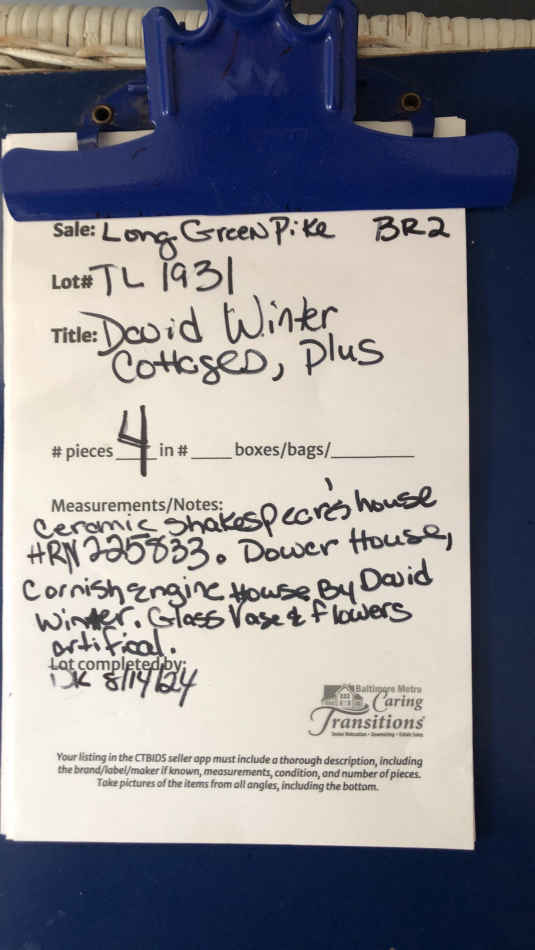 Sale: Long Green Pike BR2
Lot# TL 1931
Title: David Winter
Cottages, Plus
# pieces 4 in # ____ boxes/bags/________
Measurements/Notes:
Ceramic Shakespeare's house
#RN 225833. Dower House,
Cornish Engine House By David
Winter. Glass Vase & flowers
artifical.
Lot completed by:
DK 8/14/24
Baltimore Metro
Caring
Transitions
Senior Relocation • Downsizing • Estate Sales
Your listing in the CTBIDS seller app must include a thorough description, including
the brand/label/maker if known, measurements, condition, and number of pieces.
Take pictures of the items from all angles, including the bottom.